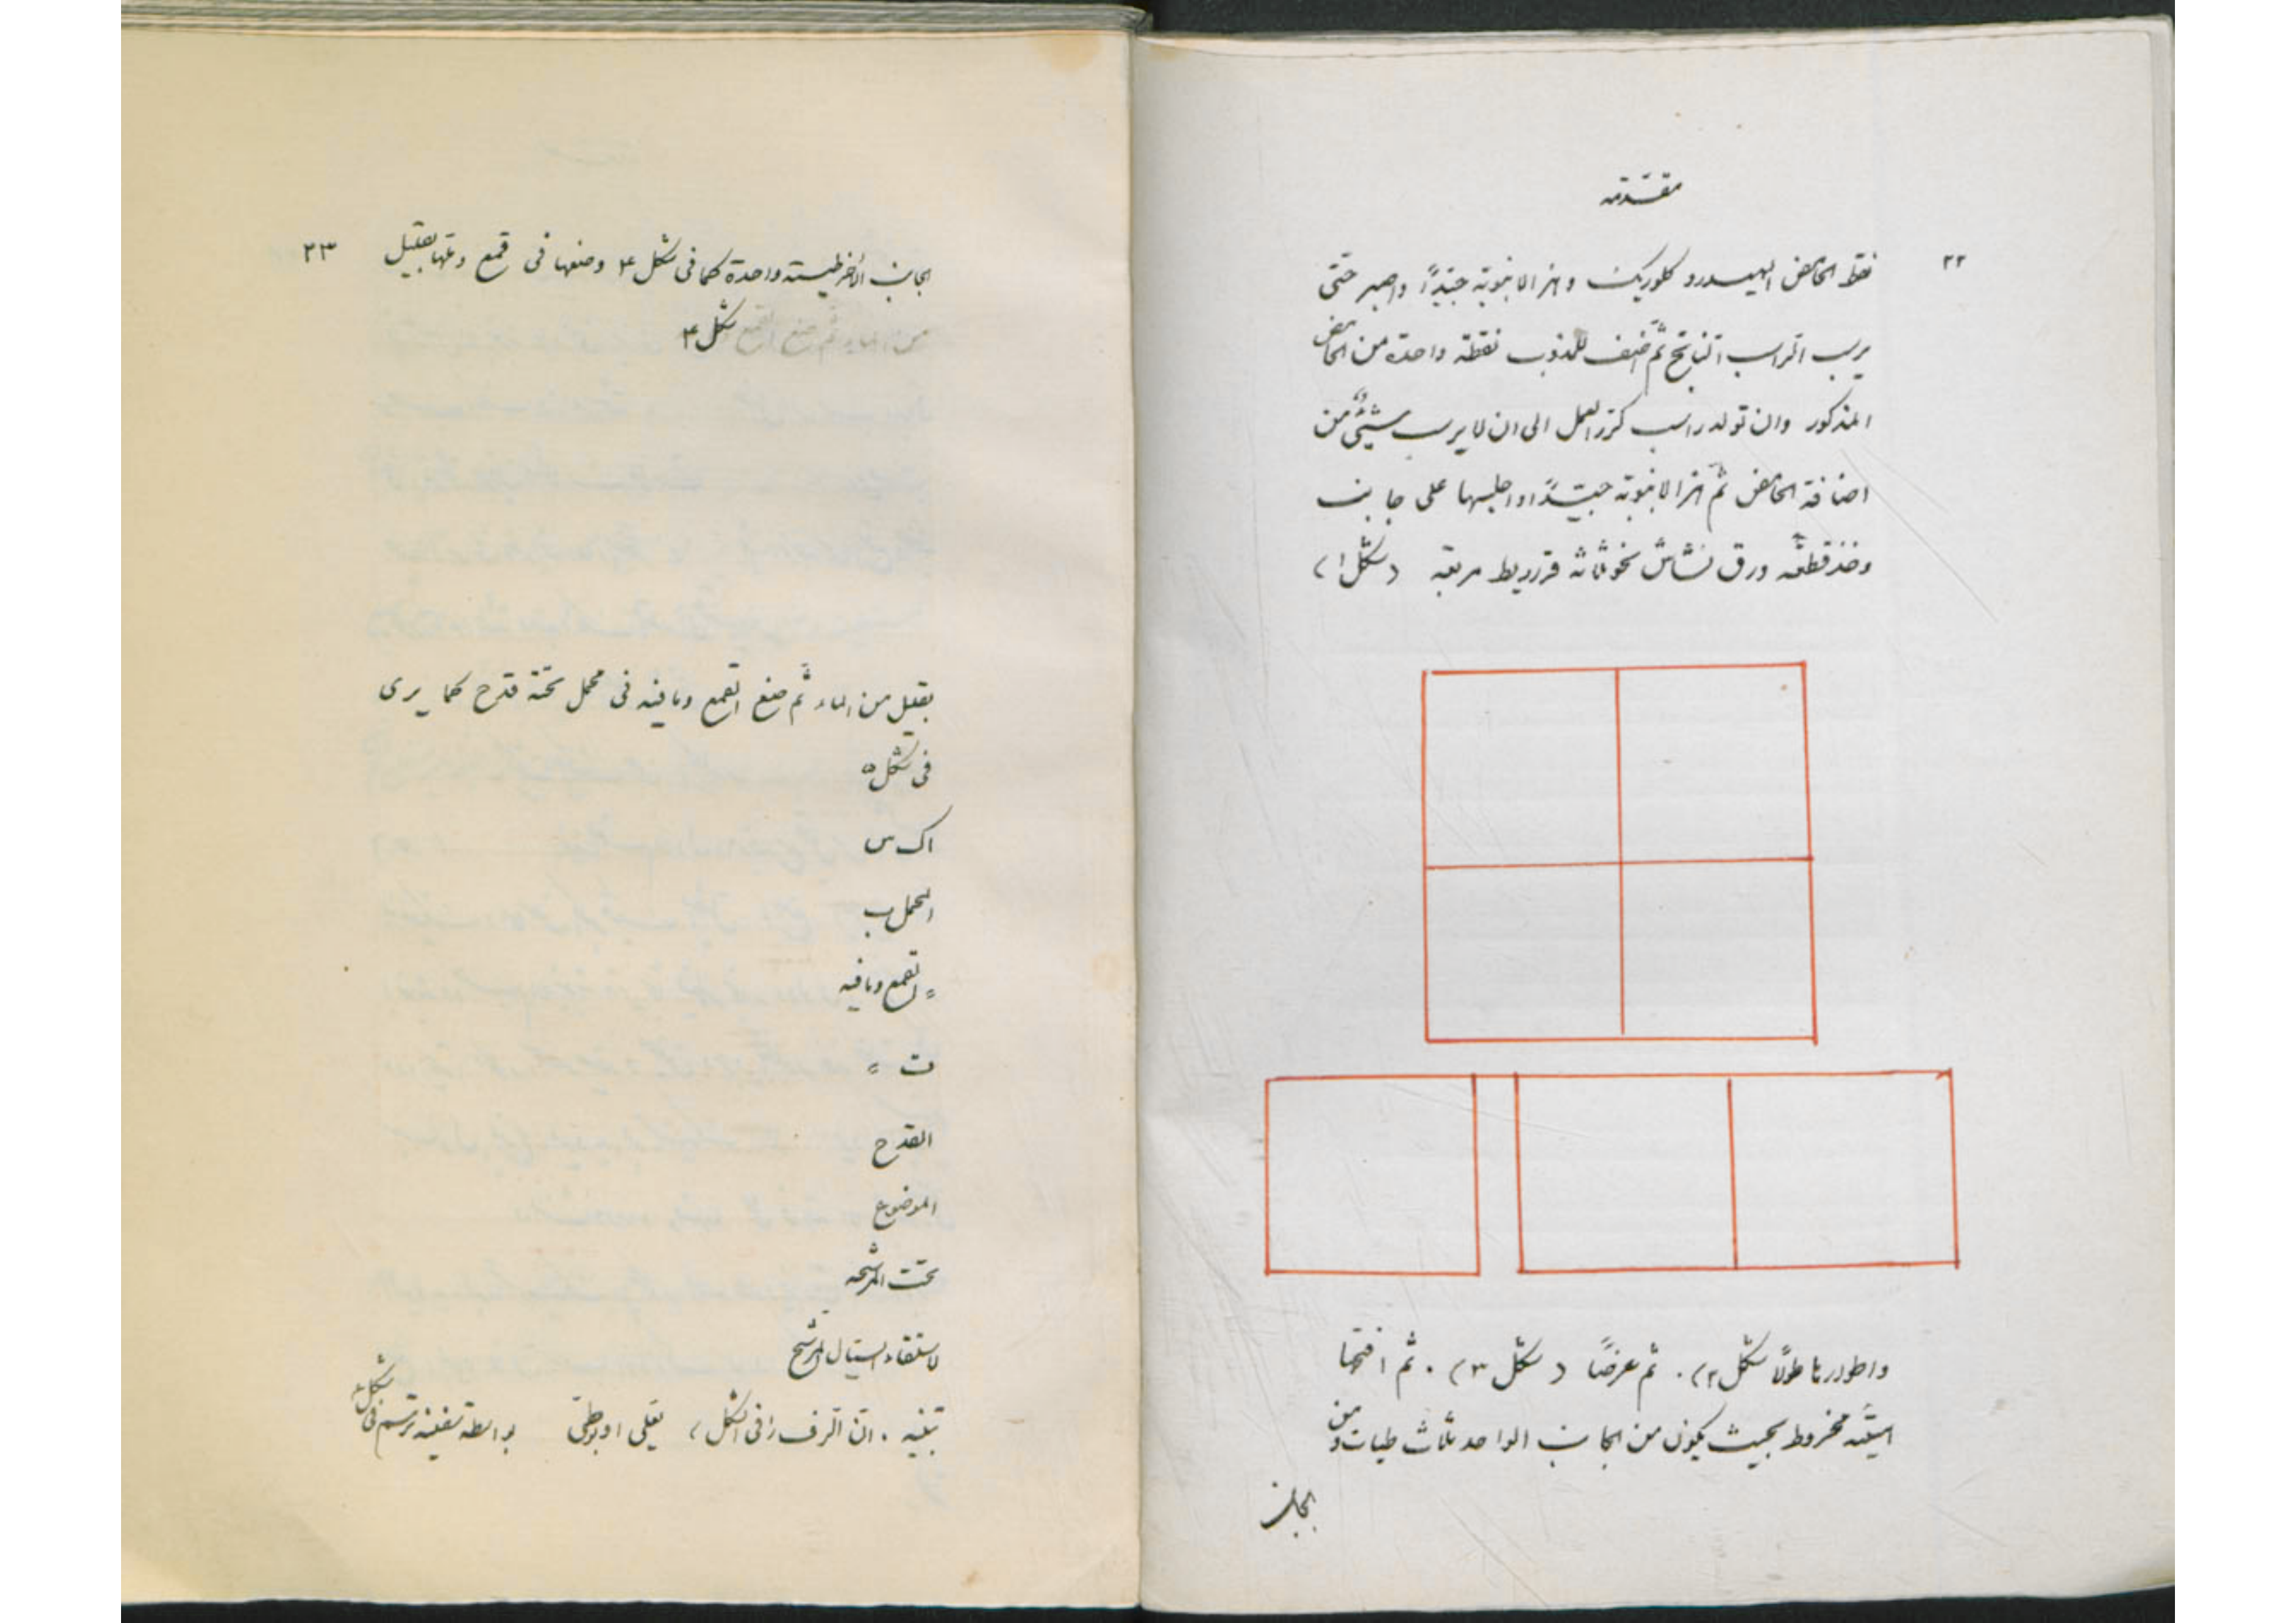 مقدّمه
٢٢
نقط الحامض الهيدروكلوريك وهز الانبوبة جيّدًا واصبر حتى
يرسب الراسب الناتج ثمّ اضف للمذوب نقطة واحدة من الحامض
المذكور وان تولد راسب كرّر العمل الى ان لا يرسب شيئٌ من
اضافة الحامض ثمّ هز الانبوبة جيّدًا واجلسها على جانب
وخذ قطعة ورق نشّاش نحو ثلثة قراريط مربّعة (شكل ١)
واطوها طولًا شكل ٢). ثم عرضًا (شكل ٣). ثم افتحها
هيئة مخروط بحيث يكون من الجانب الواحد ثلاث طيات ومن
الجانب
٢٣
الجانب الأخر طيّة واحدة كما فى شكل ٤ وضعها فى قمع وبلّها بقليل
من الماء ثم ضع القمع
شكل ٤
بقليل من الماء ثم ضع القمع وما فيه فى محمل تحتة قدح كما يرى
فى شكل ٥
اك س
المحمل ب
= القمع وما فيه
ت =
القدح
الموضوع
تحت المرشحه
لاستلقاء السيّال المرشّح
تنبيه. انّ الرف فى الشكل) يغلى
بواسطة سفينة ترتسم فى شكل